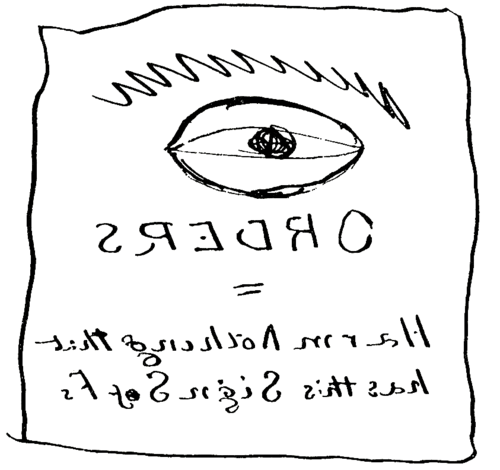 ORDERS
=
Harm Nothing that
has this Sign S of Fs